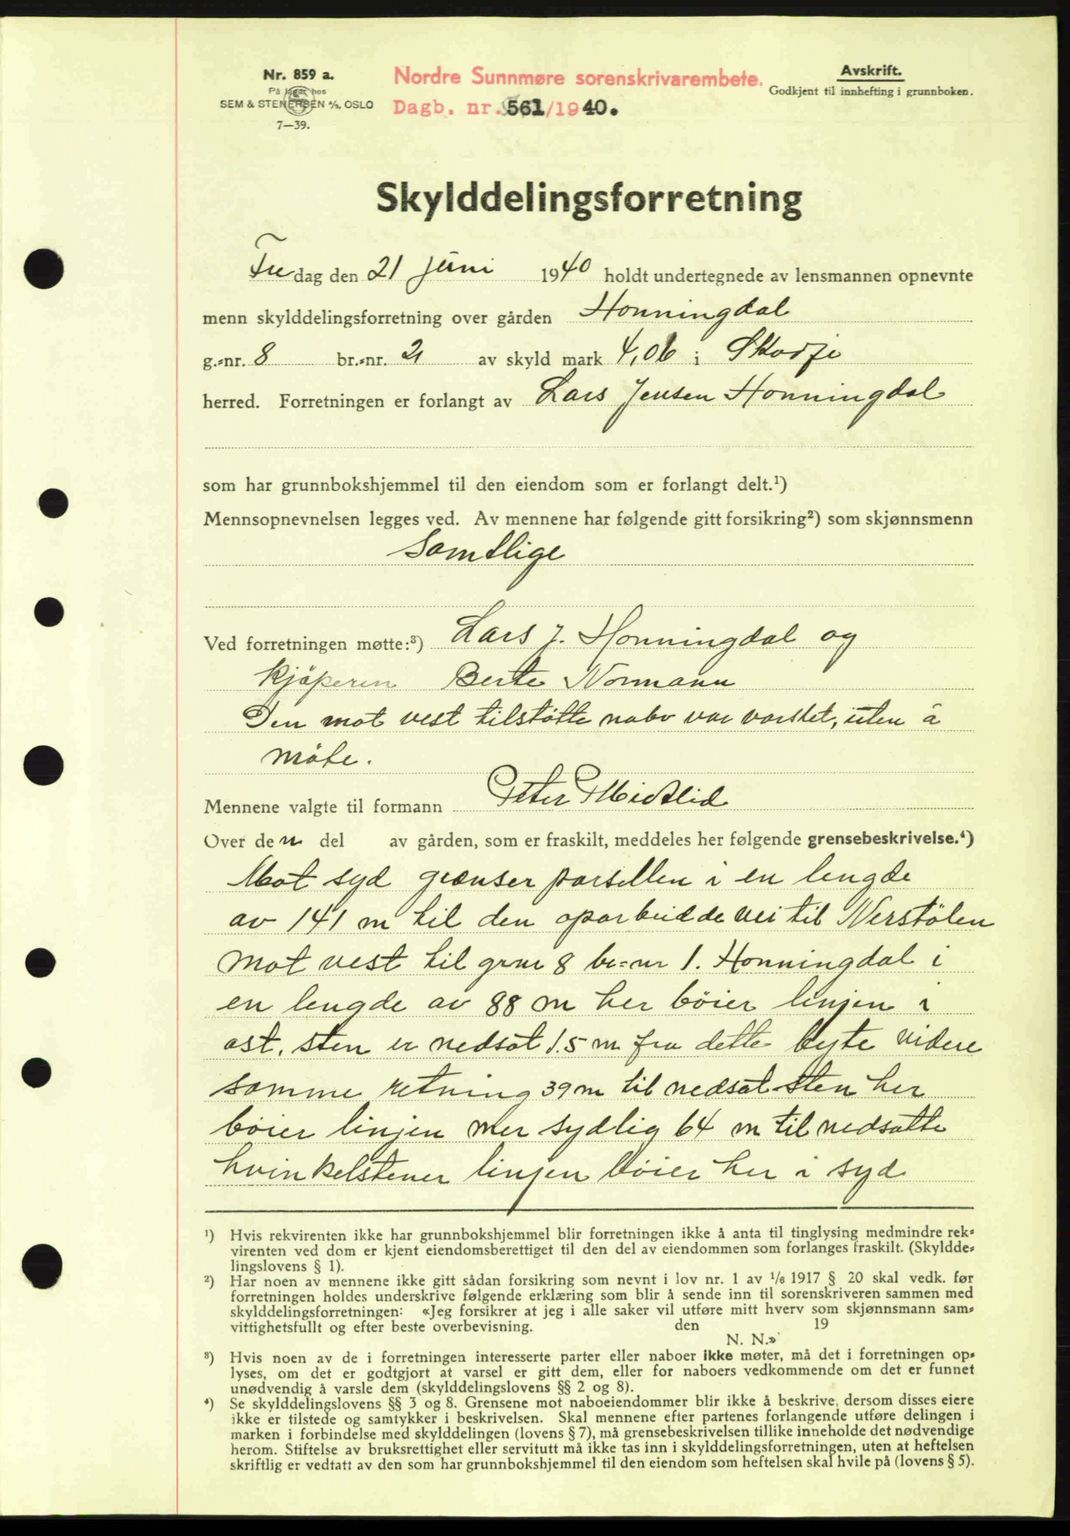 Nr. 859 a.
På lager hos
SEM & STENERSEN A/S, OSLO
7—39.
Nordre Sunnmøre sorenskrivarembete.
Dagb. nr. 561/1940.
Avskrift.
Godkjent til innhefting i grunnboken.
Skylddelingsforretning
Fredag den 21 juni 1940 holdt undertegnede av lensmannen opnevnte
menn skylddelingsforretning over gården Honningdal
g.-nr. 8 br.-nr. 2 av skyld mark 4,06 i Skodje
herred. Forretningen er forlangt av Lars Jensen Honningdal
som har grunnbokshjemmel til den eiendom som er forlangt delt.¹)
Mennsopnevnelsen legges ved. Av mennene har følgende gitt forsikring²) som skjønnsmenn
Samtlige
Ved forretningen møtte:³) Lars J. Honningdal og
kjöperen Berte Normann
Den mot vest tilstötte nabo var varslet, uten å
möte.
Mennene valgte til formann Peter Midtlid
Over den del av gården, som er fraskilt, meddeles her følgende grensebeskrivelse.⁴)
Mot syd grenser parsellen i en lengde
av 141 m til den oparbeidde vei til Nerstölen
mot vest til grnr 8 br=nr 1. Honningdal i
en lengde av 88 m her böier linjen i
ost, sten er nedsat 1.5 m fra dette byte videre
samme retning 39 m til nedsat sten her
böier linjen mer sydlig 64 m til nedsatte
hvinkelstener linjen böier her i syd
¹) Hvis rekvirenten ikke har grunnbokshjemmel blir forretningen ikke å anta til tinglysing medmindre rek-
virenten ved dom er kjent eiendomsberettiget til den del av eiendommen som forlanges fraskilt. (Skyldde-
lingslovens § 1).
²) Har noen av mennene ikke gitt sådan forsikring som nevnt i lov nr. 1 av 1/6 1917 § 20 skal vedk. før
forretningen holdes underskrive følgende erklæring som blir å sende inn til sorenskriveren sammen med
skylddelingsforretningen: «Jeg forsikrer at jeg i alle saker vil utføre mitt hverv som skjønnsmann sam-
vittighetsfullt og efter beste overbevisning. den 19
N. N.»
³) Hvis noen av de i forretningen interesserte parter eller naboer ikke møter, må det i forretningen op-
lyses, om det er godtgjort at varsel er gitt dem, eller for naboers vedkommende om det er funnet
unødvendig å varsle dem (skylddelingslovens §§ 2 og 8).
⁴) Se skylddelingslovens §§ 3 og 8. Grensene mot naboeiendommer blir ikke å beskrive, dersom disses eiere
ikke er tilstede og samtykker i beskrivelsen. Skal mennene efter partenes forlangende utføre delingen i
marken i forbindelse med skylddelingen (lovens § 7), må grensebeskrivelsen tillike inneholde det nødvendige
herom. Stiftelse av bruksrettighet eller servitutt må ikke tas inn i skylddelingsforretningen, uten at heftelsen
skriftlig er vedtatt av den som har grunnbokshjemmel til den eiendom som heftelsen skal hvile på (lovens § 5).